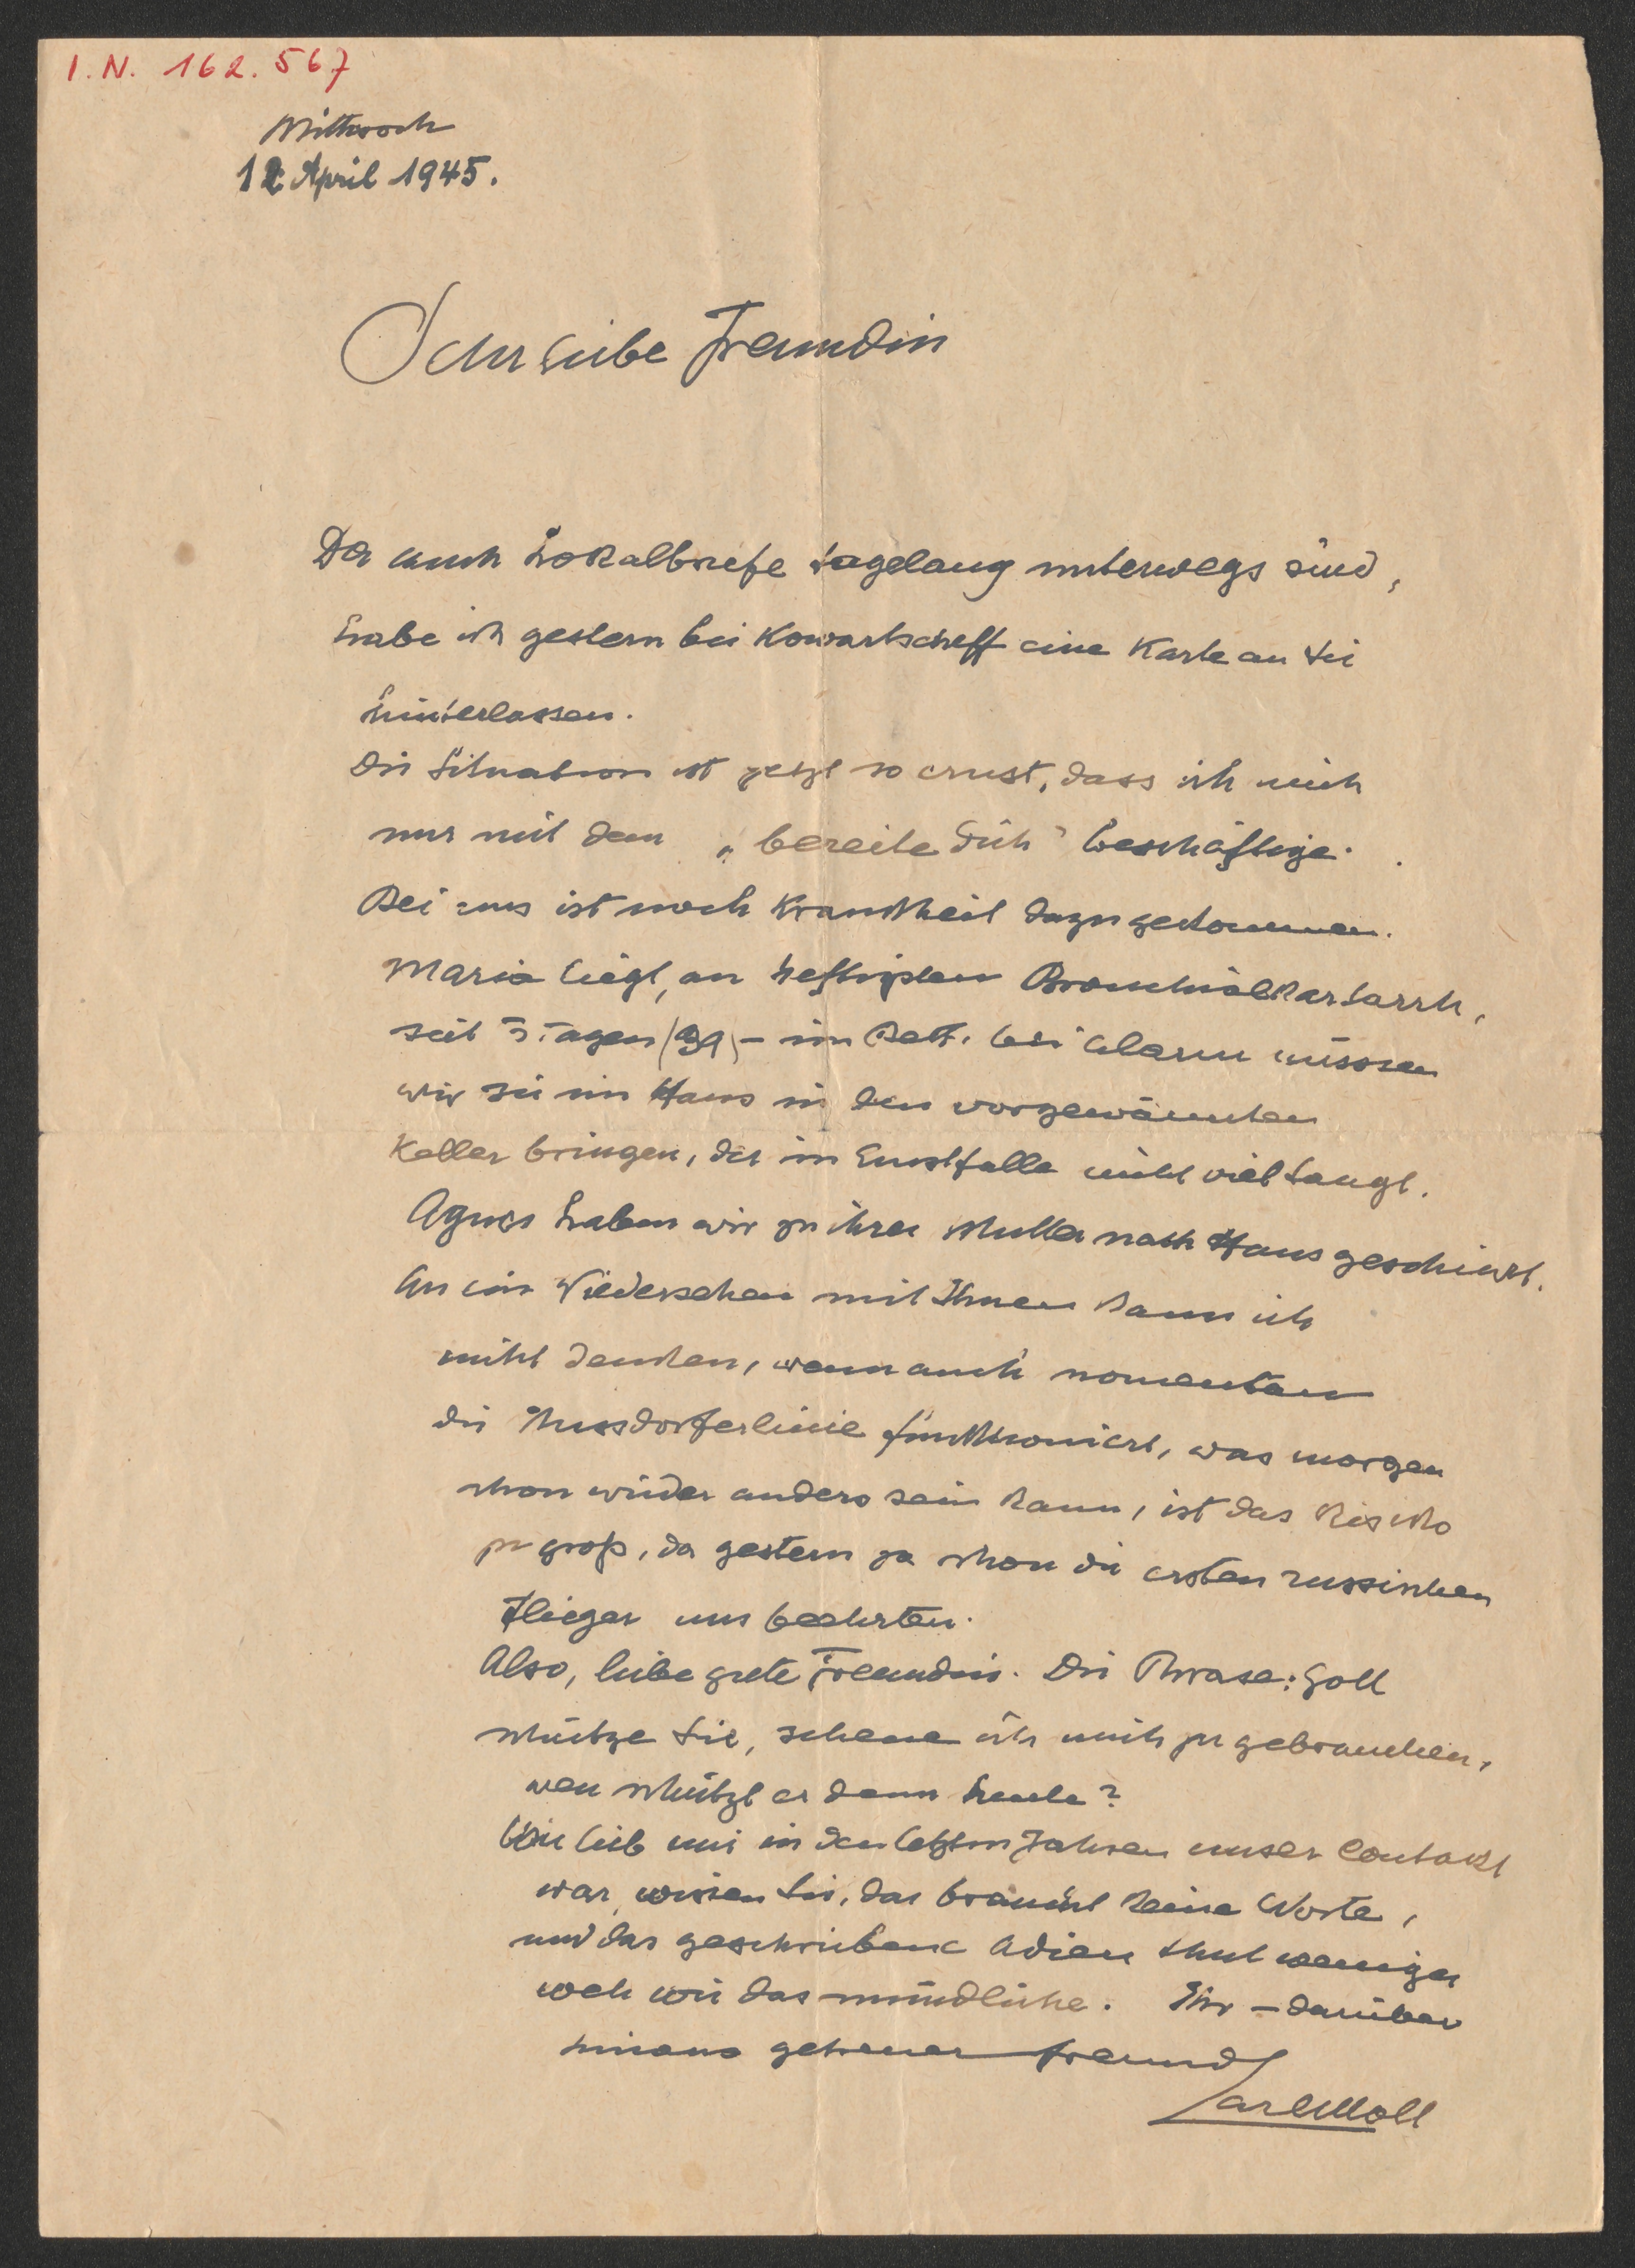 I.N. 162.567
Mittwoch
12 April 1945.
Sehr liebe Freundin
Da auch Lokalbriefe tagelang unterwegs sind,
habe ich gestern bei Kowartscheff eine Karte an Sie
hinterlassen.
Die Situation ist jetzt so ernst, dass ich mich
nur mit dem „bereite dich" beschäftige.
Bei uns ist noch Krankheit dazugekommen.
Maria liegt, an heftigstem Bronchialkartarrh,
seit 3 Tagen (39) – im Bett. bei Alarm müssen
wir sie im Haus in den vorgewärmten
Keller bringen, der im Ernstfalle nicht viel taugt.
Agnes haben wir zu ihrer Mutter nach Haus geschickt.
An ein Wiedersehen mit Ihnen kann ich
nicht denken, wenn auch momentan
die Nussdorferlinie funktioniert, was morgen
schon wieder anders sein kann, ist das Risiko
zu groß, da gestern ja schon die ersten russischen
Flieger uns beehrten.
Also, liebe gute Freundin. Die Phrase: Gott
schütze Sie, scheue ich mich zu gebrauchen,
wen schützt er denn heute?
Wie lieb mir in den letzten Jahren unser Contakt
war, wissen Sie, das braucht keine Worte,
und das geschriebene Adieu thut weniger
weh wie das mündliche. Ihr – darüber
hinaus getreuer Freund
Carl Moll